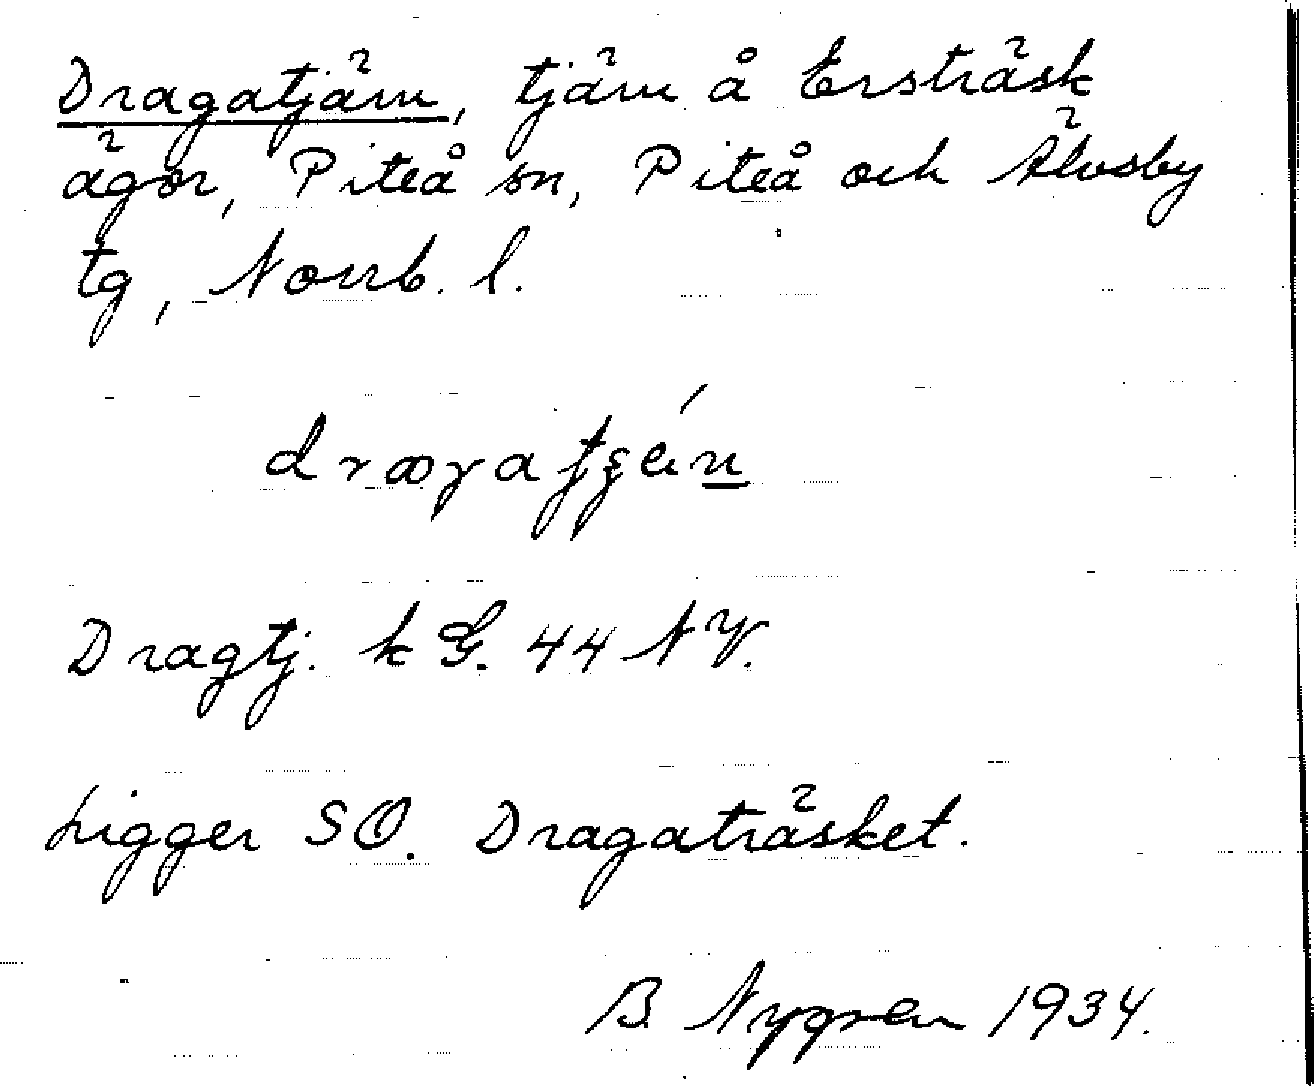 Dragatjärn, tjärn å Ersträsk
ägor, Piteå sn, Piteå och Älvsby
tg, Norrb. l.
Dragtj. k G. 44 NV.
Ligger SO. Dragaträsket.
B. Nygren 1934.